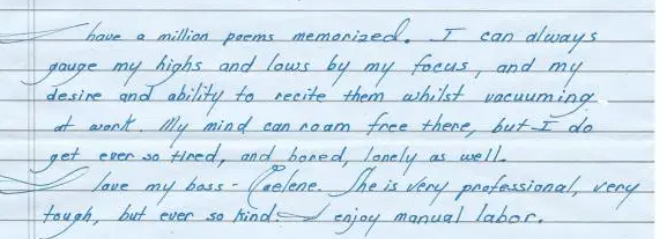 I have a million poems memorized. I can always
gauge my highs and lows by my focus, and my
desire and ability to recite them whilst vacuuming
at work. My mind can roam free there, but I do
get ever so tired, and bored, lonely as well.
I love my boss - Caelene. She is very professional, very
tough, but ever so kind. I enjoy manual labor.